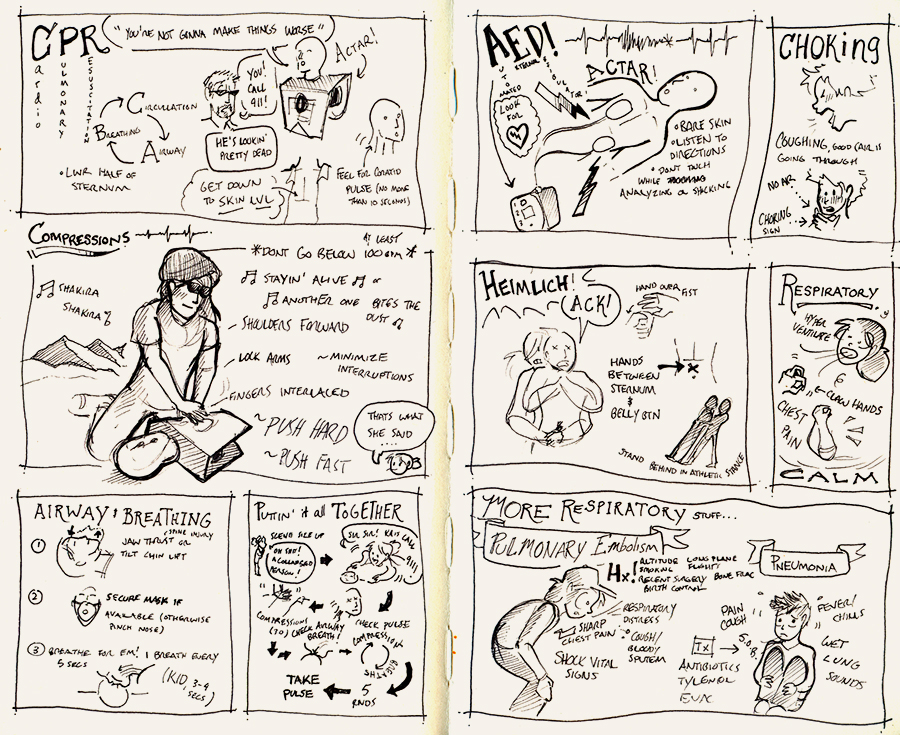 CPR
Cardio
Pulmonary
Resuscitation
"YOU'RE NOT GONNA MAKE THINGS WORSE"
ACTAR!
YOU!
CALL
911!
HE'S LOOKIN'
PRETTY DEAD
CIRCULATION
BREATHING
AIRWAY
• LWR HALF OF
STERNUM
GET DOWN
TO SKIN LVL
FEEL FOR
PULSE (NO MORE
THAN 10 SECONDS)
COMPRESSIONS
AT LEAST
*DONT GO BELOW 100 *
SHAKIRA
SHAKIRA
STAYIN' ALIVE or
ANOTHER ONE BITES THE
DUST
- SHOULDERS FORWARD
- LOCK ARMS
~ MINIMIZE
INTERRUPTIONS
- FINGERS INTERLACED
~ PUSH HARD
~ PUSH FAST
THATS WHAT
SHE SAID
....
AIRWAY & BREATHING
① JAW THRUST OR
SPINE INJURY
TILT CHIN LIFT
② SECURE MASK IF
AVAILABLE (OTHERWISE
PINCH NOSE)
③ BREATHE FOR EM! 1 BREATH EVERY
5 SECS
(KID, 3-4
SECS)
PUTTIN' it all TOGETHER
SCENE SIZE UP
OH SHI!
A COLLAPSED
PERSON!
SIR SIR!
CALL
911!
CHECK PULSE
CHECK AIRWAY
BREATH!
COMPRESSIONS
(30)
COMPRESSION
5
RNDS
TAKE
PULSE
AED!
AUTOMATED
EXTERNAL
LOOK
FOR
ACTAR!
• BARE SKIN
• LISTEN TO
DIRECTIONS
• DON'T TOUCH
WHILE
ANALYZING or SHOCKING
CHOKING
COUGHING, GOOD (AIR IS
GOING THROUGH
NO AIR
CHOKING
SIGN
HEIMLICH!
(ACK!
HAND OVER FIST
HANDS
BETWEEN
STERNUM
&
BELLY BTN
STAND BEHIND IN ATHLETIC STANCE
RESPIRATORY
HYPER
VENTILATE
CLAW HANDS
CHEST
PAIN
CALM
MORE RESPIRATORY STUFF...
PULMONARY EMBOLISM
Hx!
ALTITUDE LONG PLANE
SMOKING FLIGHT
RECENT SURGERY BONE FRAC
BIRTH CONTROL
RESPIRATORY
DISTRESS
SHARP
CHEST PAIN
COUGH/
BLOODY
SPUTEM
SHOCK VITAL
SIGNS
PNEUMONIA
PAIN
COUGH
FEVER/
CHILLS
Tx
S.O.B.
ANTIBIOTICS
TYLENOL
EVAC
WET
LUNG
SOUNDS